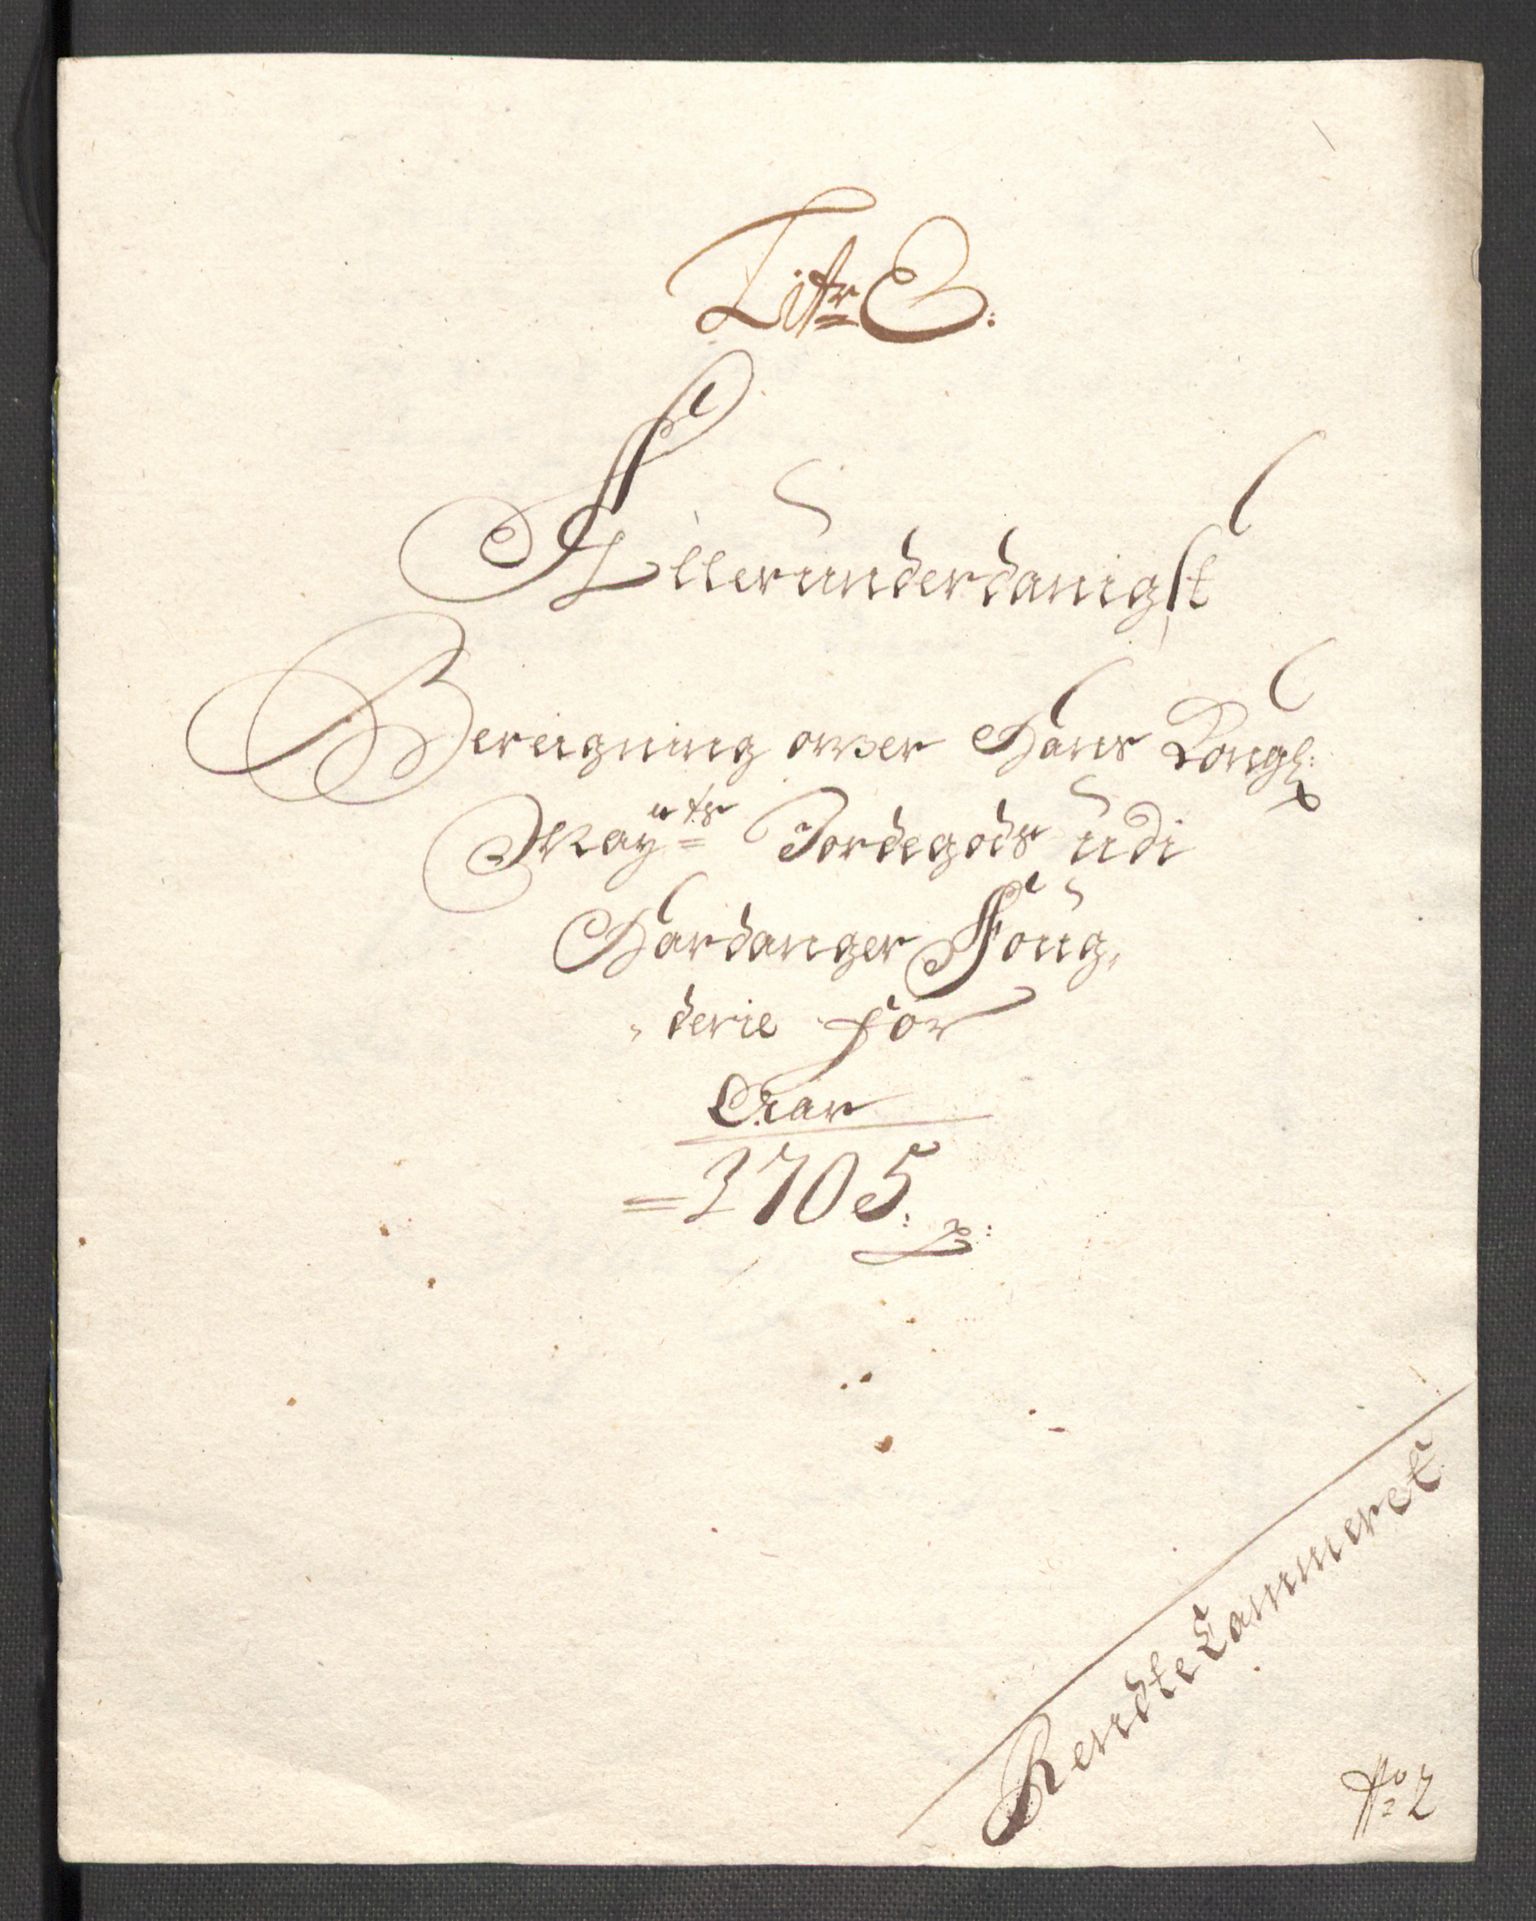 Litr B:
Allerunderdanigst
Beregning ower Hans Kongl:
Mayts Jordegods udi
Hardanger Foug,
, derie for
Aar
= 1705.
RendteCammeret
No 2